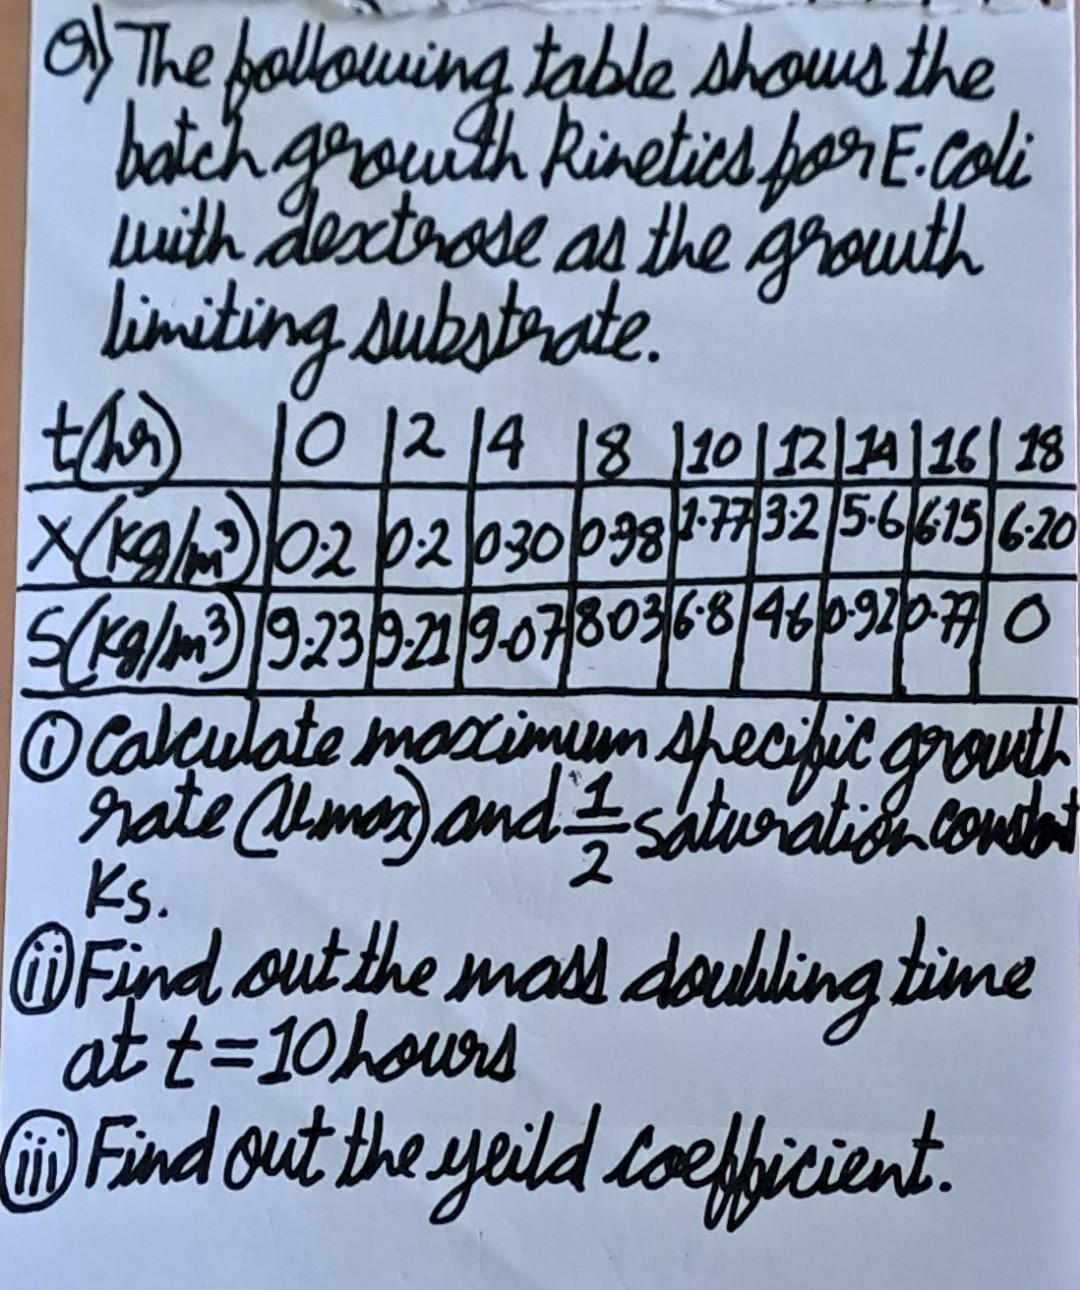 Q) The following table shows the
batch growth kinetics for E.coli
with dextrose as the growth
limiting substrate.
t(hr) | 0 | 2 | 4 | 8 | 10 | 12 | 14 | 16 | 18
X(kg/m³) | 0.2 | 0.2 | 0.30 | 0.98 | 1.77 | 3.2 | 5.6 | 6.15 | 6.20
S(kg/m³) | 9.23 | 9.21 | 9.07 | 8.03 | 6.8 | 4.6 | 0.92 | 0.77 | 0
(i) Calculate maximum specific growth
rate (μmax) and 1/2 saturation constant
Ks.
(ii) Find out the mass doubling time
at t=10hours
(iii) Find out the yeild coefficient.